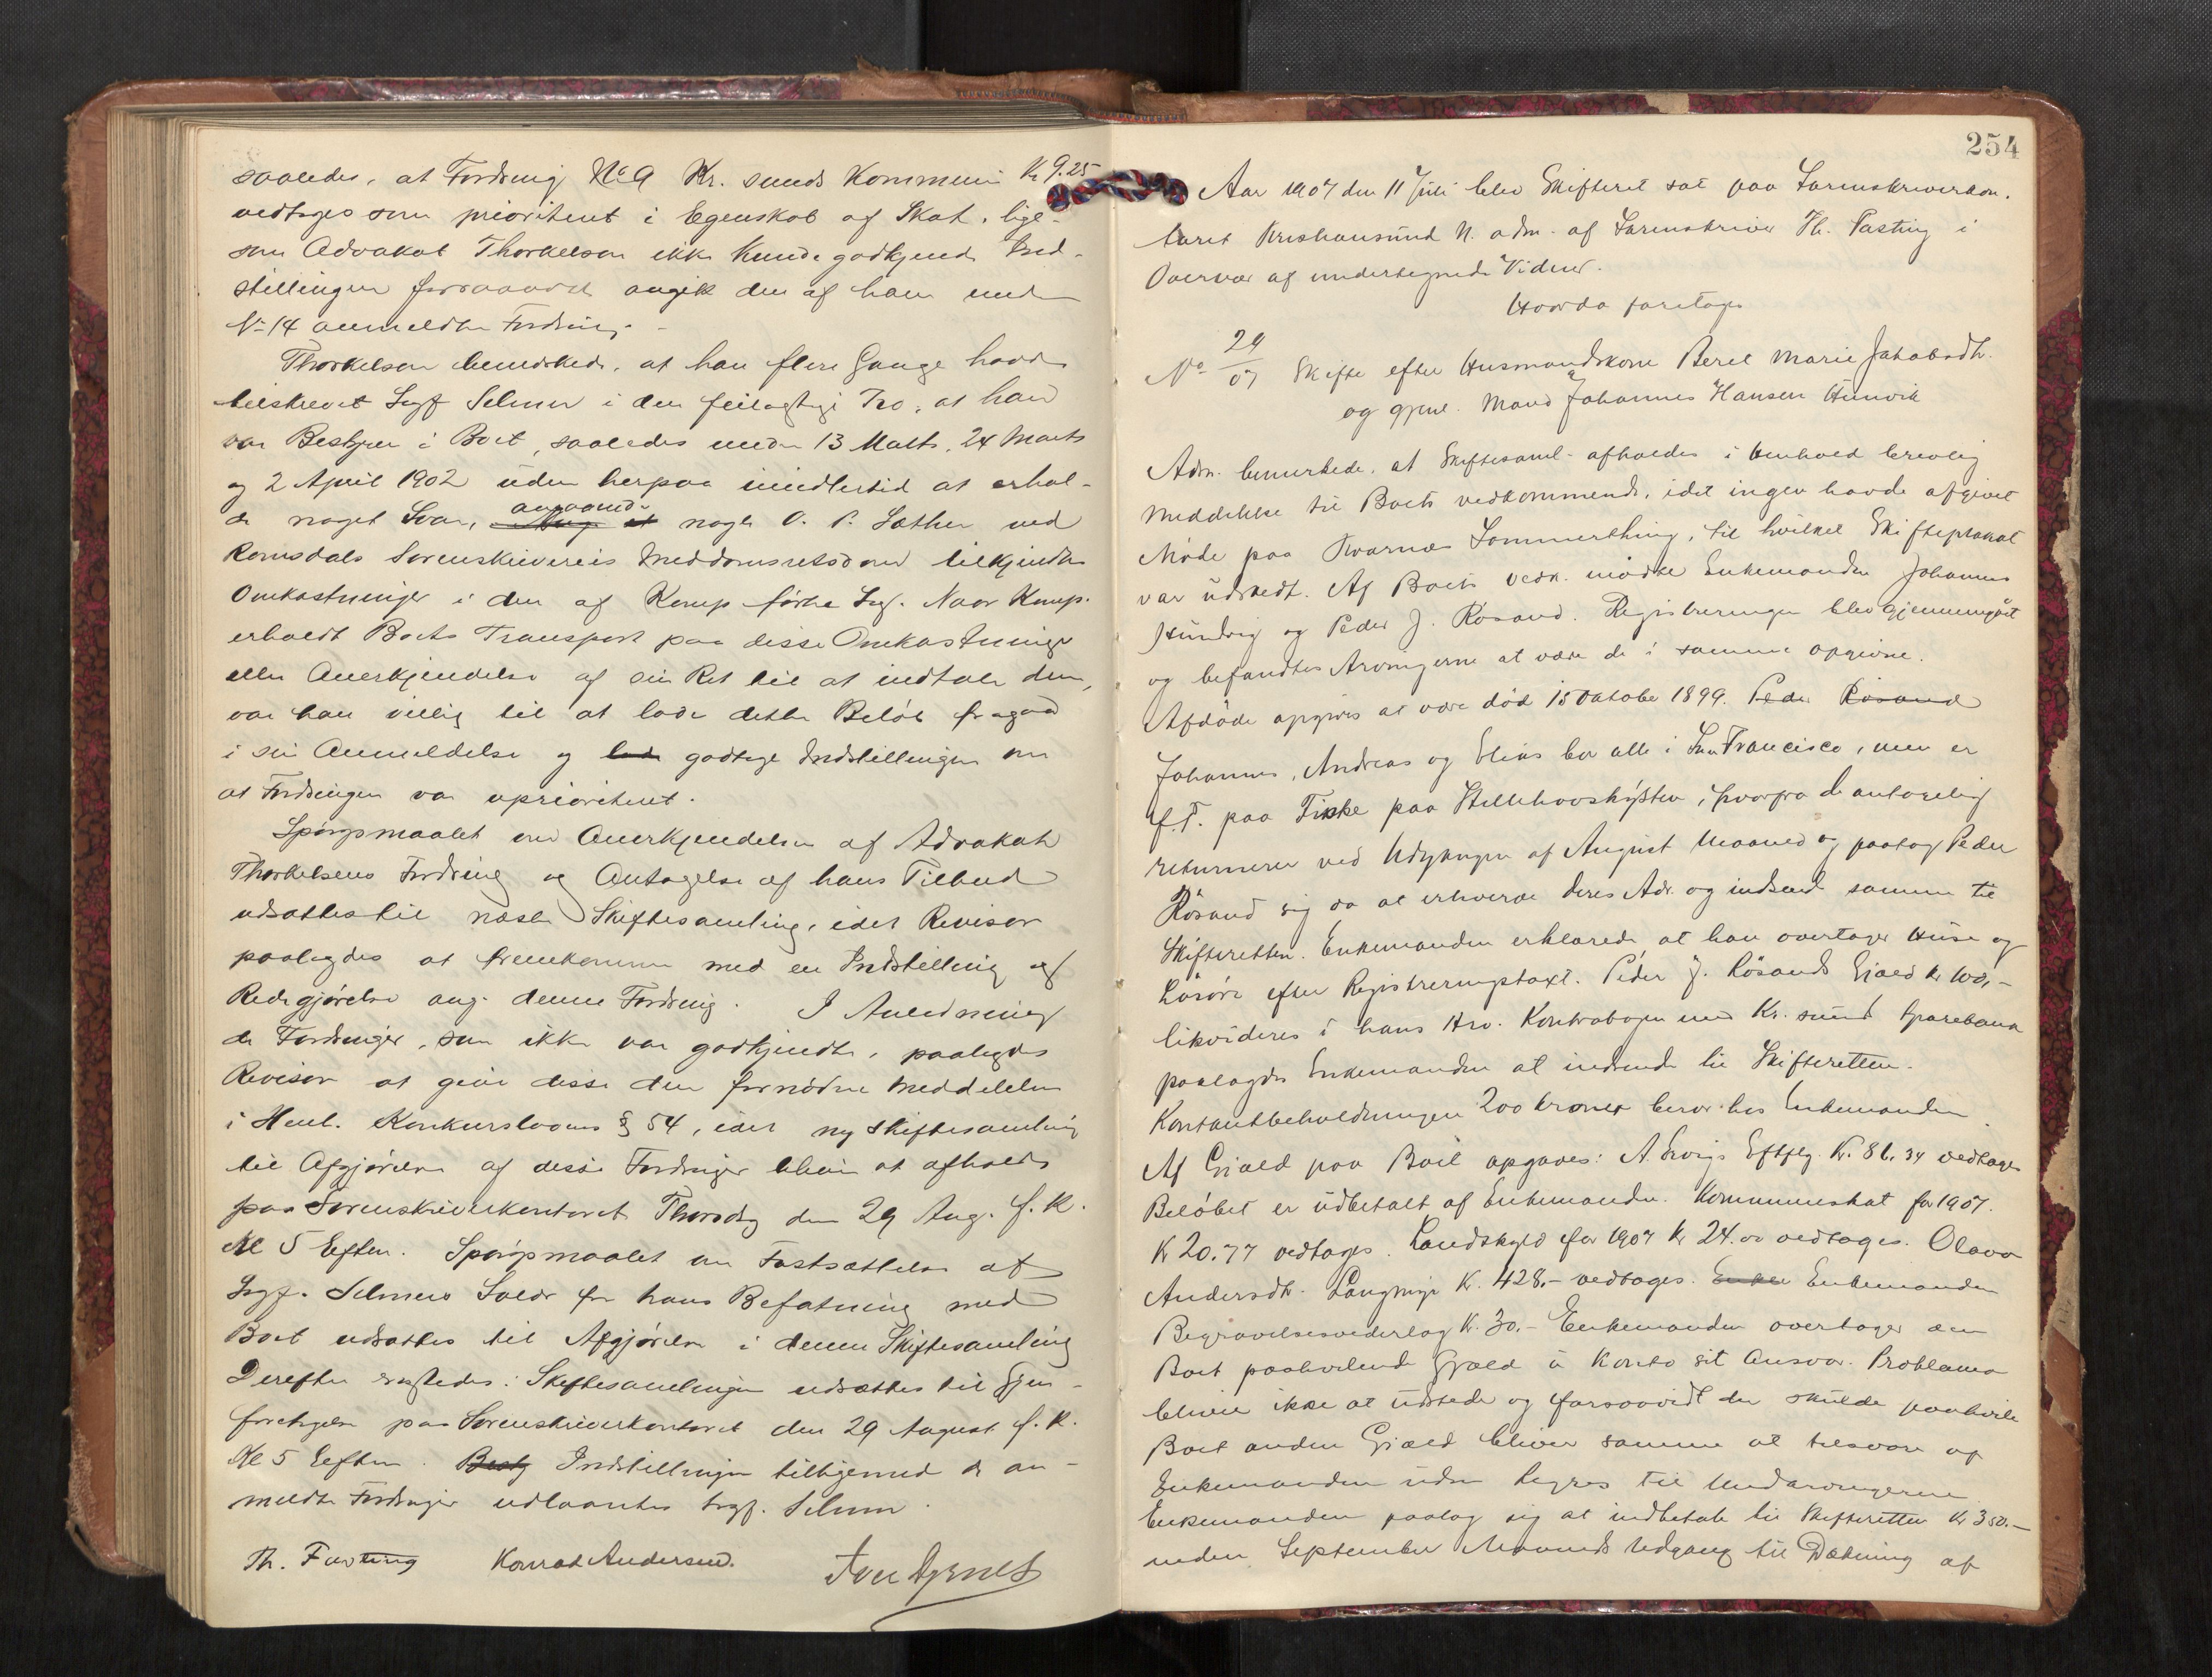 saaledes, at Fordring No 9 Kr. sunds Kommune Kr 9.25
vedtages som prioriteret i Egenskab af Skat, lige-
som Advokat Thorkelsen ikke kunde godkjende Ind-
stillingen forsaavidt angik den af ham under
No 14 anmeldte Fordring.
Thorkelsen bemerkede, at han flere Gange havde
tilskrevet Sagf Selmer i den feilagtige Tro, at han
var Bestyrer i Boet, saaledes under 13 Marts, 24 Marts
og 2 April 1902 uden herpaa imidlertid at erhol-
de noget Svar, angaaende nogle O. P. Sæther ved
Romsdals Sorenskriveries Meddomsretsdom tilkjendte
Omkostninger i den af Kamp førte Sag. Naar Kamp
erholdt Boets Transport paa disse Omkostninger
eller Anerkjendelse af sin Ret til at indtale dem,
var han villig til at lade dette Beløb fragaa
i sin Anmeldelse og lade godtage Indstillingen om
at Fordringen var uprioriteret.
Spørgsmaalet om Anerkjendelsen af Advokat
Thorkelsens Fordring og Antagelse af hans Tilbud
udsattes til næste Skiftesamling, idet Revisor
paalagdes at fremkomme med en Indstilling og
Redegjørelse ang. denne Fordring. I Anledning
de Fordringer, som ikke var godkjendte, paalagdes
Revisor at give disse den fornødne Meddelelse
i Henh. Konkurslovens § 54, idet ny Skiftesamling
til Afgjørelse af disse Fordringer bliver at afholde
paa Sorenskriverkontoret Thorsdag den 29 Aug. f. K.
Kl 5 Eftm. Spørgsmaalet om Fastsættelse af
Sagf. Selmers Salær for hans Befatning med
Boet udsattes til Afgjørelse i denne Skiftesamling
Derefter sluttedes: Skiftesamlingen udsættes til Gjen-
foretagelse paa Sorenskriverkontoret den 29 August f. K.
Kl 5 Eftm. Besty Indstillingen tilligemed de an-
meldte Fordringer udlaantes Sagf. Selmer.
Th. Fasting Konrad Andersen.
254
Aar 1907 den 11 Juli blev Skifteret sat paa Sorenskriverkon-
toret Kristiansund N. adm. af Sorenskriver Th. Fasting i
Overvær af undertegnede Vidner.
Hvorda foretages
No 29/07 Skifte efter Husmandskone Beret Marie Jakobsdt.
og gjenl. Mand Johannes Hansen Hunvik
Adm. bemerkede, at Skiftesaml. afholdes i Henhold brevlig
Meddelelse til Boets vedkommende, idet ingen havde afgivet
Møde paa Kvernæs Sommerthing, til hvilket Skifteplakat
var udstedt. Af Boets vedk. mødte Enkemanden Johannes
Hunvig og Peder J. Røsand. Registreringen blev gjennemgaaet
og befandtes Arvingerne at være de i samme opgivne.
Afdøde opgives at være død 15 Oktober 1899. Peder Røsand
Johannes, Andreas og Elias bor alle i San Francisco, men er
f.T. paa Fiske paa Stillehavskysten, hvorfra de antagelig
returnerer ved Udgangen af August Maaned og paatog Peder
Røsand sig da at erhverve deres Adr. og indsende samme til
Skifteretten. Enkemanden erklærede at han overtager Huse og
Løsøre efter Registreringstaxt. Peder J. Røsands Gjæld Kr 100,-
likvideres i hans Arv. Kontrabogen med Kr. sund Sparebank
paalagdes Enkemanden at indsende til Skifteretten.
Kontantbeholdningen 200 kroner beror hos Enkemanden
Af Gjæld paa Boet opgaves: A. Eftflg. Kr. 86.34 vedtages
Beløbet er udbetalt af Enkemanden. Kommuneskat for 1907.
Kr 20.77 vedtages. Landskyld for 1907 Kr 24.00 vedtages. Olava
Andersdt. Kr. 428.- vedtages. Enke Enkemanden
Begravelsesvederlag Kr. 30.- Enkemanden overtager den
Boet paahvilende Gjæld à Konto sit Ansvar. Proklama
bliver ikke at udstede og forsaavidt der skulde paahvile
Boet anden Gjæld bliver samme at tilsvare af
Enkemanden uden Regres til Medarvingerne
Enkemanden paatog sig at indbetale til Skifteretten Kr 350.-
inden September Maaneds Udgang til Dækning af